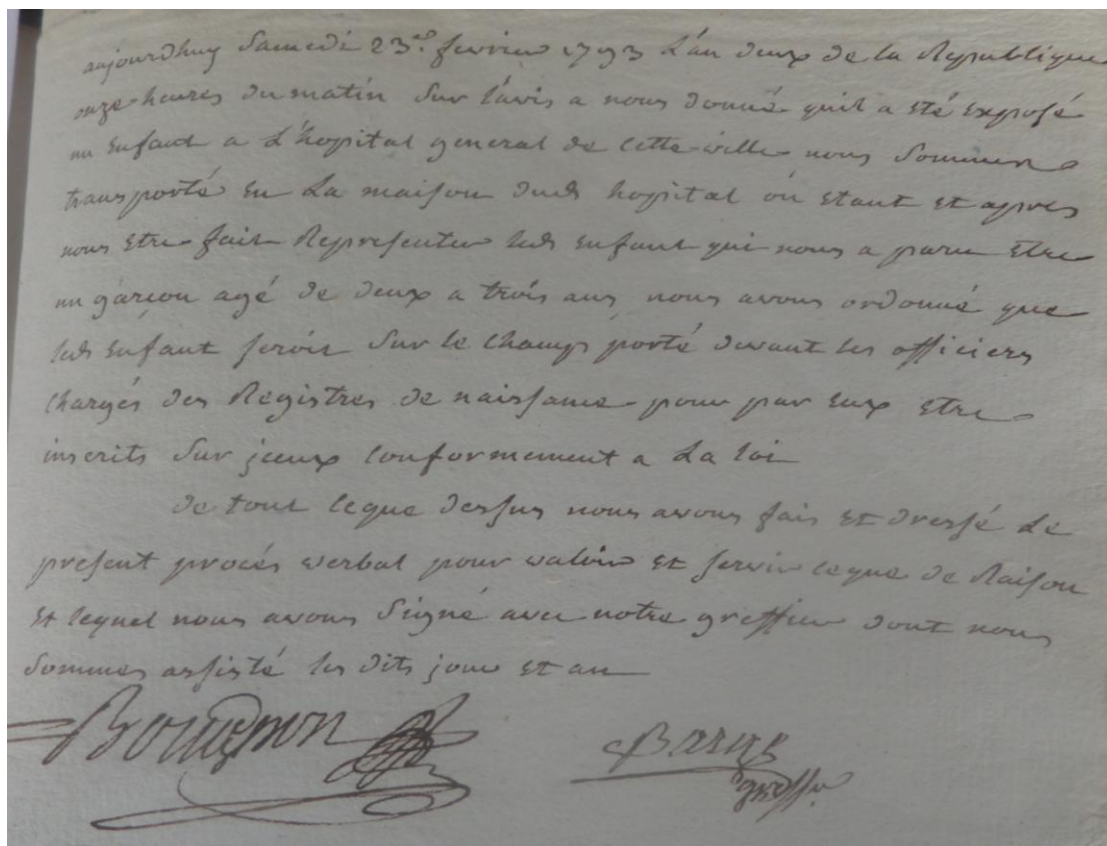 aujourdhuy Samedi 23.e fevrier 1793 L'an deux de la Republique
onze heures du matin Sur l'avis a nous donné quil a eté Exposé
un Enfant a L'hopital general de cette ville nous Sommes
transporté En La maison dud. hopital ou Etant Et apres
nous Etre fait Representer led. Enfant qui nous a paru Etre
un garcon agé de deux a trois ans nous avons ordonné que
led. Enfant seroit Sur le champ porté devant les officiers
chargés des Registres de naissance pour par Eux Etre
inscrits Sur jceux conformement a La loi
de tout ceque dessus nous avons fais Et dressé Le
present procés verbal pour valoir Et servir ceque de Raison
Et lequel nous avons Signé avec notre greffier dont nous
Sommes assisté les dits jour Et an